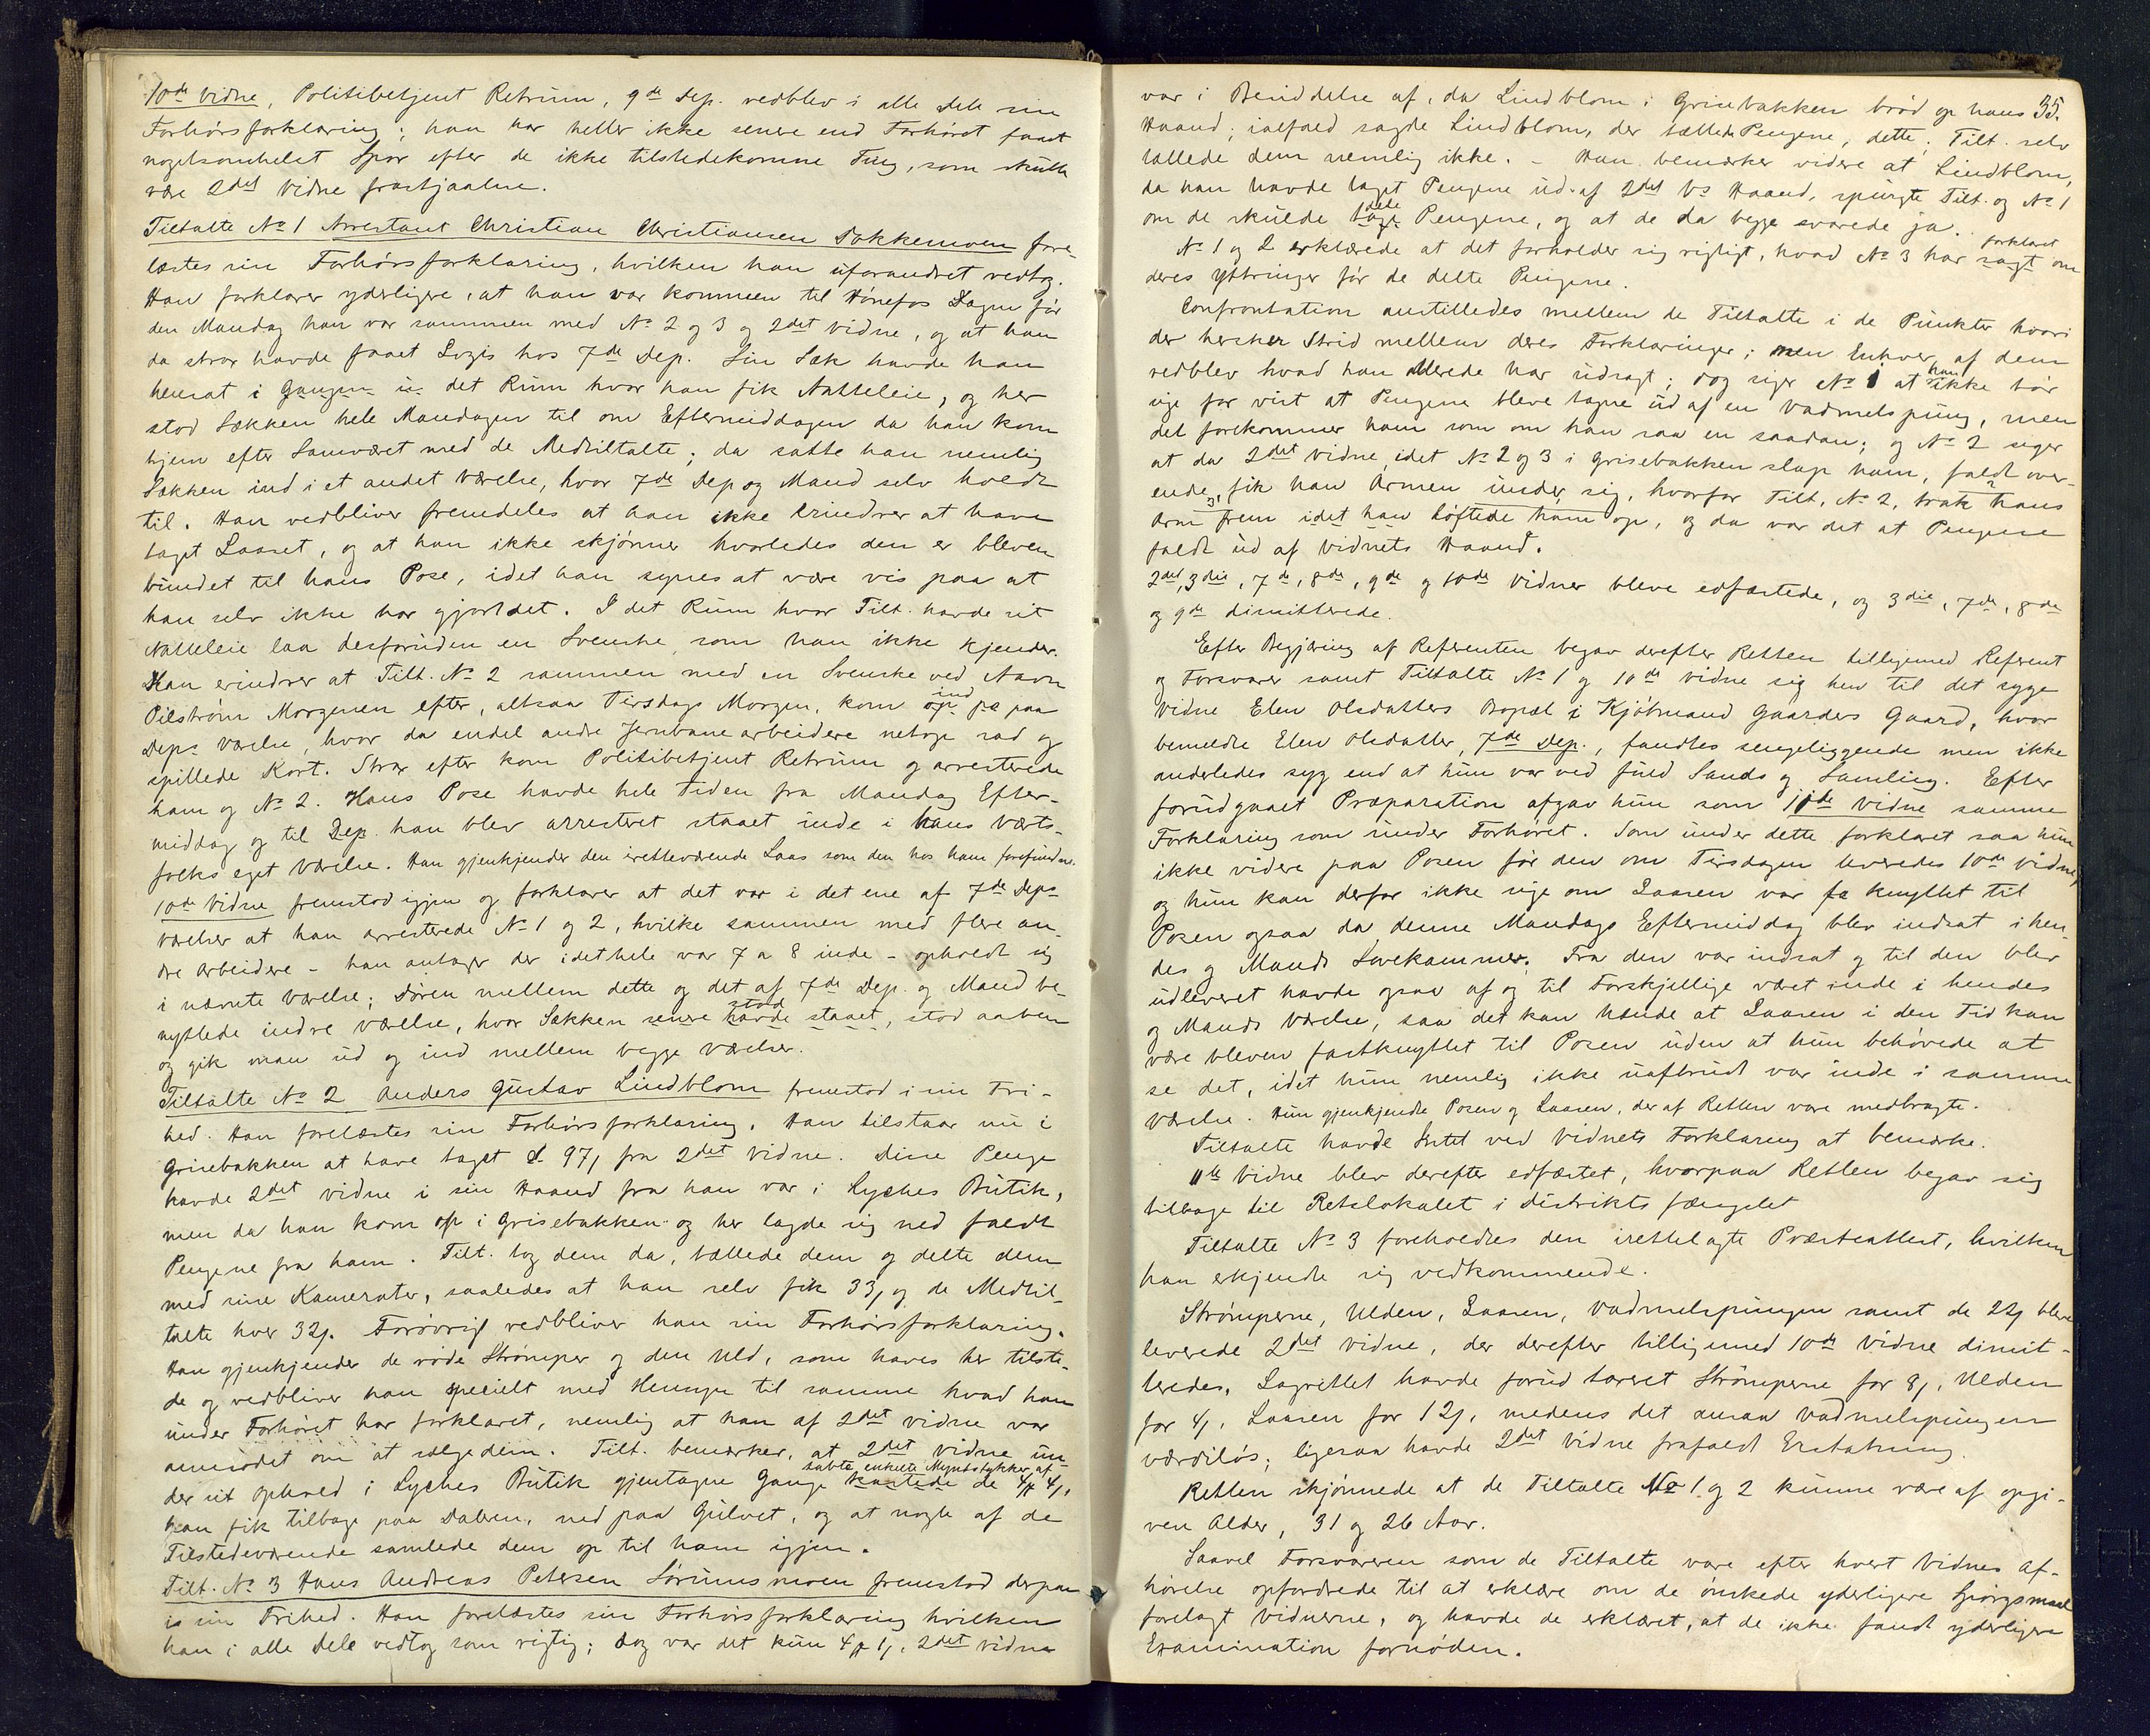 10de Vidne, Politibetjent Retrum, 9de Dep. vedblev i alle Dele sin
Forhørsforklaring; han har heller ikke senere end Forhøret faaet
nogetsomhelst Spor efter de ikke tilstedekomne Ting, som skulle
være 2det Vidne frastjaalne.
Tiltalte No 1 Arrestant Christian Christiansen Dokkemoen fore-
læstes sin Forhørsforklaring, hvilken han uforandret vedtog.
Han forklarer yderligere, at han var kommen til Hønefos Dagen før
den Mandag han var sammen med No 2 og 3 og 2det Vidne, og at han
da strax havde faaet Logis hos 7de Dep. Sin Sæk havde han
hensat i Gangen i det Rum hvor han fik Natteleie, og her
stod Sækken hele Mandagen til om Eftermiddagen da han kom
hjem efter Samværet med de Medtiltalte; da satte han nemlig
Sækken ind i et andet Værelse, hvor 7de Dep og Mand selv holdt
til. Han vedbliver fremdeles at han ikke erindrer at have
taget Laaset, og at han ikke skjønner hvorledes den er bleven
bundet til hans Pose, idet han synes at være vis paa at
han selv ikke har gjort det. I det Rum hvor Tilt. havde sit
Natteleie laa desforuden en Svenske, som han ikke kjender.
Han erindrer at Tilt. No 2 sammen med en Svenske ved Navn
Pilstrøm Morgenen efter, altsaa Tirsdags Morgen, kom op ind pa paa
Deps Værelse, hvor da endel andre Jernbanearbeidere netop sad og
spillede Kort. Strax efter kom Politibetjent Retrum og arresterede
ham og No 2. Hans Pose havde hele Tiden fra Mandag Efter-
middag og til Dep. han blev arresteret staaet inde i hans Værts-
folks eget Værelse. Han gjenkjender den iretteværende Laas som den hos ham forefundne.
10de Vidne fremstod igjen og forklarer at det var i det ene af 7de Deps
Værelser at han arresterede No 1 og 2, hvilke sammen med flere an-
dre Arbeidere - han antager der idethele var 7 a 8 inde - opholdt sig
i nævnte Værelse; Døren mellem dette og det af 7de Dep. og Mand be-
nyttede indre Værelse, hvor Sækken senere havde staaet stod, stod aaben
og gik man ud og ind mellem begge Værelser.
Tiltalte No 2 Anders Gustav Lindblom fremstod i sin Fri-
hed. Han forelæstes sin Forhørsforklaring. Han tilstaar nu i
Grisebakken at have taget 97, fra 2det Vidne. Disse Penge
havde 2det Vidne i sin Haand fra han var i Lyches Butik,
men da han kom op i Grisebakken og her lagde sig ned faldt
Pengene fra ham. Tilt. tog dem da, tællede dem og delte dem
med sine Kamerater, saaledes at han selv fik 33, og de Medtil-
talte hver 32,. Forøvrigt vedbliver han sin Forhørsforklaring.
Han gjenkjender de røde Strømper og den Uld, som haves her tilste-
de og vedbliver han specielt med Hensyn til samme hvad han
under Forhøret har forklaret, nemlig at han af 2det Vidne var
anmodet om at sælge dem. Tilt. bemærker, at 2det Vidne un-
der sit Ophold i Lyches Butik gjentagne Gange kastede tabte enkelte Myntstykker af de 4 4,
han fik tilbage paa Daleren, ned paa Gulvet, og at nogle af de
Tilstedeværende samlede dem op til ham igjen.
Tilt. No 3 Hans Andreas Petersen Sørumsmoen fremstod derpaa
i sin Frihed. Han forelæstes sin Forhørsforklaring hvilken
han i alle Dele vedtog som rigtig; dog var det kun 4 1, 2det Vidne
35.
var i Besiddelse af, da Lindblom i Grisebakken brød op hans
Haand; ialfald sagde Lindblom, der tællede Pengene, dette; Tilt. selv
tællede dem nemlig ikke. - Han bemærker videre at Lindblom,
da han havde taget Pengene ud af 2det Vs Haand, spurgte Tilt. og No 1
om de skulde tage dele Pengene, og at de da begge svarede ja.
No 1 og 2 erklærede at det forholder sig rigtigt, hvad No 3 har sagt forklaret om
deres Yttringer før de delte Pengene.
Confrontation anstilledes mellem de Tiltalte i de Punkter hvori
der hersker Strid mellem deres Forklaringer; men Enhver af dem
vedblev hvad han allerede har udsagt; dog siger No 1 at han ikke tør
sige for vist at Pengene bleve tagne ud af en Vadmelspung, men
det forekommer ham som om han saa en saadan; og No 2 siger
at da 2det Vidne, idet No 2 og 3 i Grisebakken slap ham, faldt over-
ende, fik han Armen under sig, hvorfor Tilt. No 2, trak hans
Arm frem idet han løftede ham op, og da var det at Pengene
faldt ud af Vidnets Haand.
2det, 3die, 7de, 8de, 9de og 10de Vidner bleve edfæstede, og 3die, 7de, 8de
og 9de dimitterede.
Efter Begjæring af Referenten begav derefter Retten tilligemed Referent
og Forsvarer samt Tiltalte No 1 og 10de Vidne sig hen til det syge
Vidne Elen Olsdatters Bopæl i Kjøbmand Gaarders Gaard, hvor
bemeldte Elen Olsdatter, 7de Dep., fandtes sengeliggende men ikke
anderledes syg end at hun var ved fuld Sands og Samling. Efter
forudgaaet Præparation afgav hun som 11de Vidne samme
Forklaring som under Forhøret. Som under dette forklaret saa hun
ikke videre paa Posen før den om Tirsdagen leveredes 10de Vidne,
og hun kan derfor ikke sige om Laasen var fa knyttet til
Posen ogsaa da denne Mandags Eftermiddag blev indsat i hen-
des og Mands Sovekammer. Fra den var indsat og til den blev
udleveret havde ogsaa af og til Forskjellige været inde i hendes
og Mands Værelse, saa det kan hænde at Laasen i den Tid kan
være bleven fastknyttet til Posen uden at hun behøvede at
se det, idet hun nemlig ikke uafbrudt var inde i samme
Værelse. Hun gjenkjendte Posen og Laasen, der af Retten vare medbragte.
Tiltalte havde Intet ved Vidnets Forklaring at bemærke.
11te Vidne blev derefter edfæstet, hvorpaa Retten begav sig
tilbage til Retslokalet i Distriktsfængslet
Tiltalte No 3 foreholdtes den irettelagte Præsteattest, hvilken
han erkjendte sig vedkommende.
Strømperne, Ulden, Laasen, Vadmelspungen samt de 22, bleve
leverede 2det Vidne, der derefter tilligemed 10de Vidne dimit-
teredes. Lagrettet havde forud taxeret Strømperne for 8, Ulden
for 4, Laasen for 12, medens det ansaa Vadmelspungen
værdiløs; ligesaa havde 2det Vidne frafaldt Erstatning.
Retten skjønnede at de Tiltalte No 1 og 2 kunne være af opgi-
ven Alder, 31 og 26 Aar.
Saavel Forsvareren som de Tiltalte vare efter hvert Vidnes Af-
hørelse opfordrede til at erklære om de ønskede yderligere Spørgsmaal
forelagt Vidnerne, og havde de erklæret, at de ikke fandt yderligere
Examination fornøden.